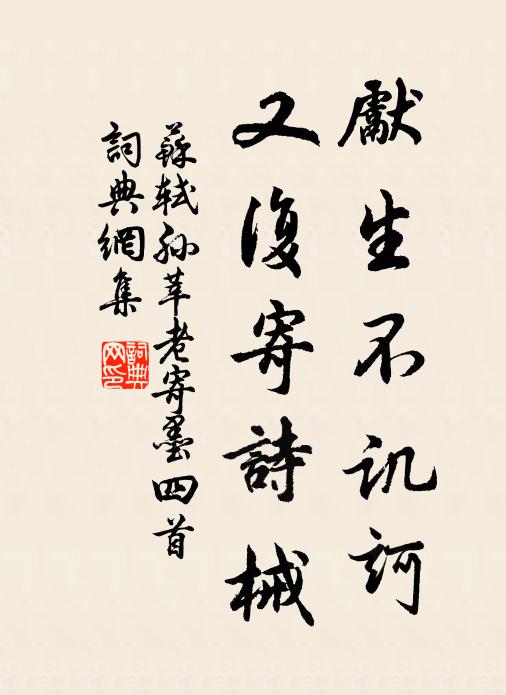 獻生不讥訶
又復寄詩械
蘇軾孫莘老寄墨四首
詞典網集
詞典网印